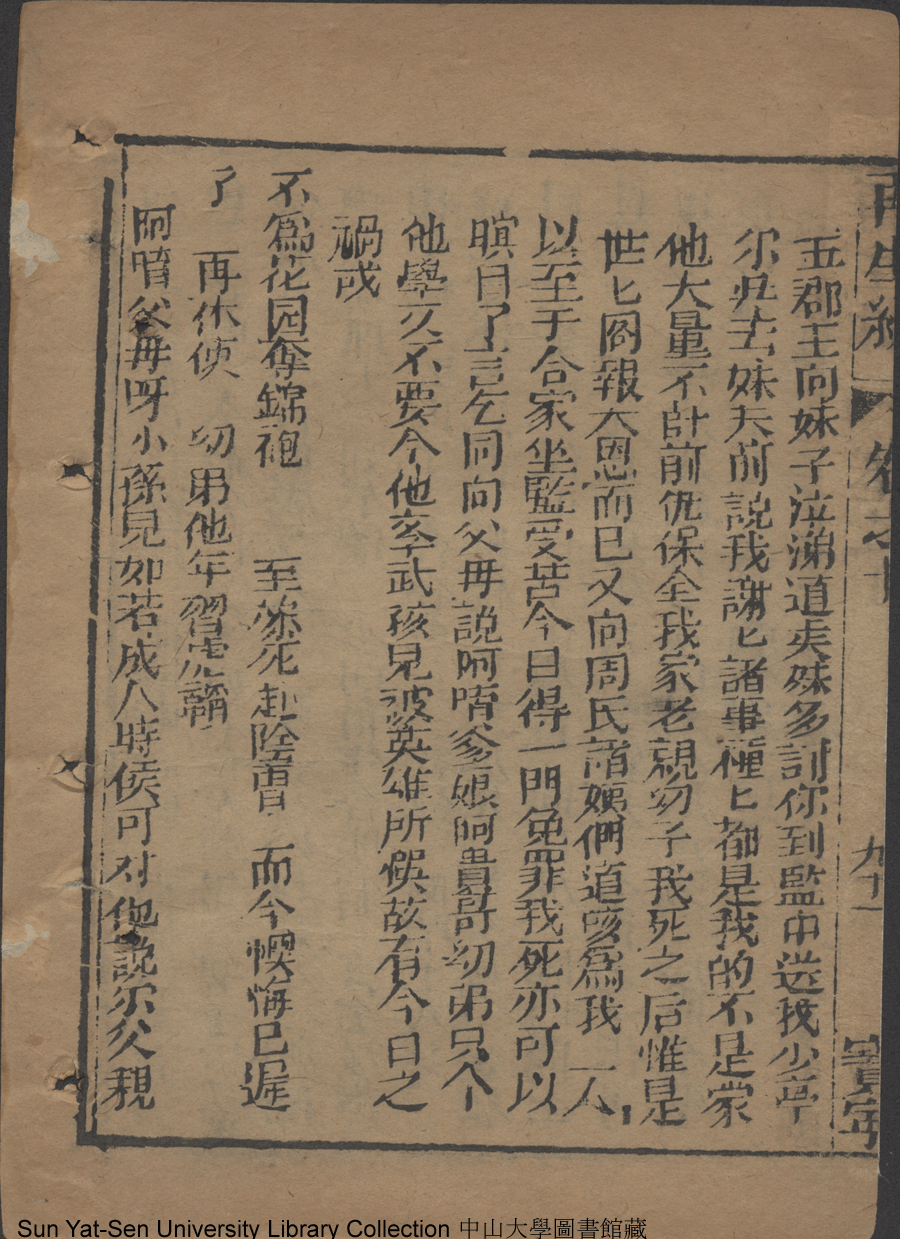 再生緣 卷之十 九十一 寳寧
五郡王向妹子泣涕道吴妹多討你到監中送找少章
尔吳去妹夫前説我謝匕諸事種匕都是我的不是蒙
他大量不計前仇保全我家老親幼子我死之后惟是
世匕啚報大恩而已又向周氏諸姨們道咳爲我一人
以至于合家坐監受苦今日得一門免罪我死亦可以
瞑目了言乞同向父毋説阿唷爹娘阿貴哥幼弟只个
他學文不要令他李武孩兒被英雄所悞故有今日之
禍或
不爲花园奪錦袍 至死赴陰曹 而今懊悔已遲
了 再休使 幼弟他年習
阿唷父毋呀小孫兒如若成人時侯可对他説尔父親
Sun Yat-Sen University Library Collection 中山大學圖書館藏